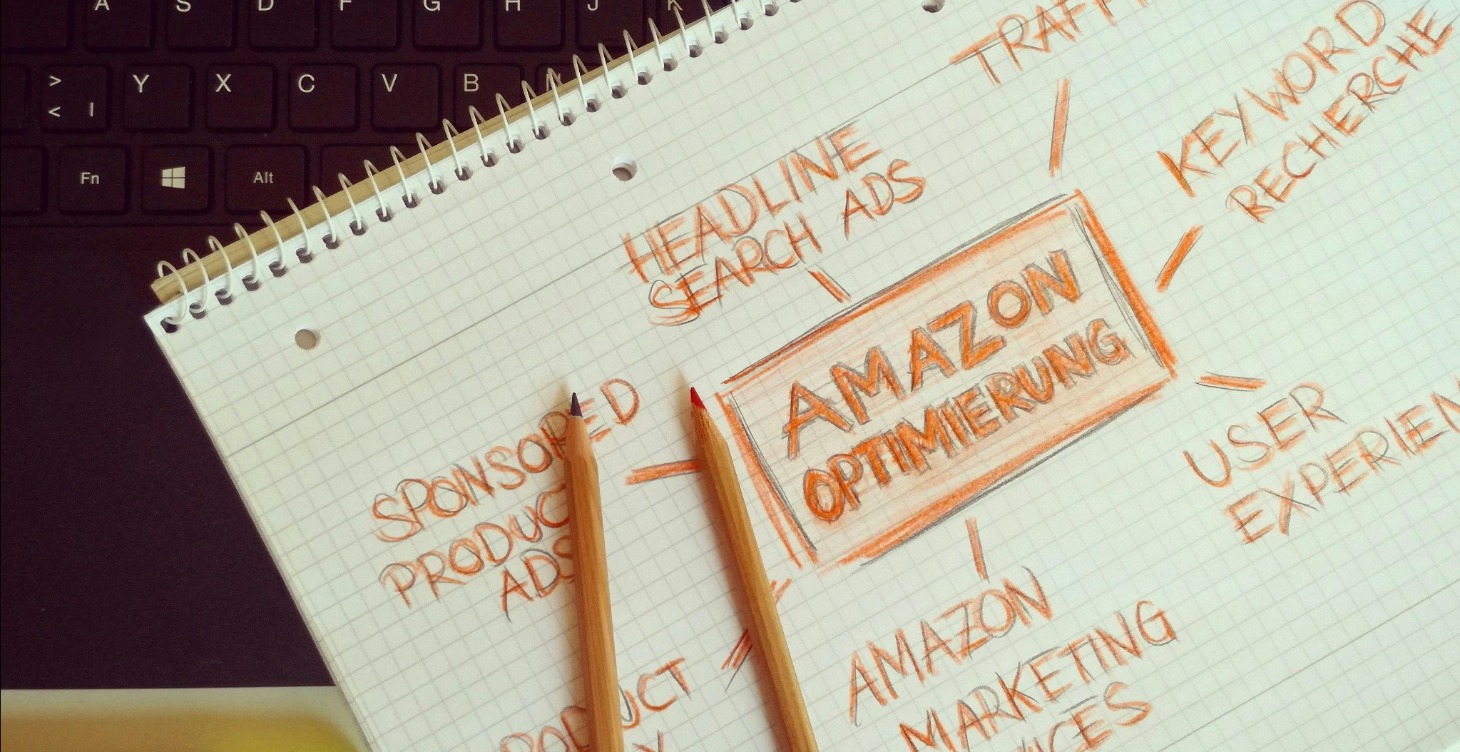 A S D F G H J K
> Y X C V B
< |
Fn Alt
TRAFFI
KEYWORD
RECHERCHE
HEADLINE
SEARCH ADS
AMAZON
OPTIMIERUNG
SPONSORED
PRODUCT
ADS
USER
EXPERIEN
AMAZON
MARKETING